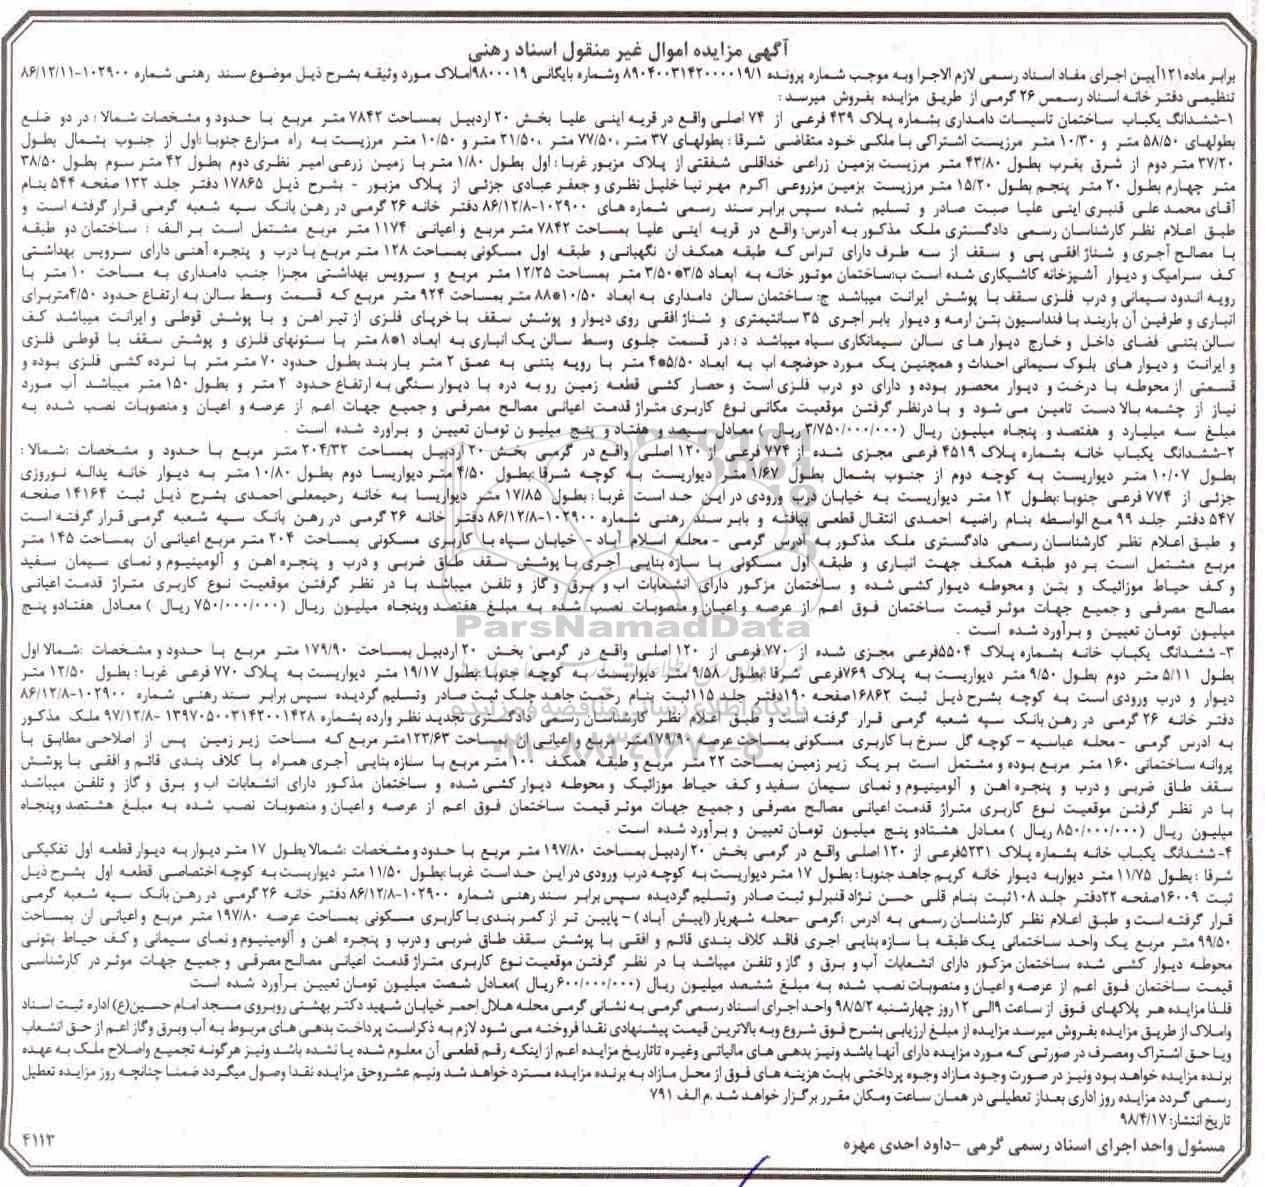 آگهی مزایده اموال غیر منقول اسناد رهنی
برابر ماده۱۲۱آیین اجرای مفاد اسناد رسمی لازم الاجرا وبه موجب شماره پرونده ۸۹۰۴۰۰۳۱۴۲۰۰۰۰۱۹/۱ وشماره بایگانی ۹۸۰۰۰۱۹املاک مورد وثیقه بشرح ذیل موضوع سند رهنی شماره ۱۰۲۹۰۰-۸۶/۱۲/۱۱
تنظیمی دفتر خانه اسناد رسمس ۲۶ گرمی از طریق مزایده بفروش میرسد :
۱-ششدانگ یکباب ساختمان تاسیسات دامداری بشماره پلاک ۴۳۹ فرعی از ۷۴ اصلی واقع در قریه اینی علیا بخش ۲۰ اردبیل بمساحت ۷۸۴۲ متر مربع با حدود و مشخصات شمالا : در دو ضلع
بطولهای ۵۸/۵۰ متر و ۱۰/۳۰ متر مرزیست اشتراکی با ملکی خود متقاضی شرقا : بطولهای ۳۷ متر ،۷۷/۵۰ متر ،۲۱/۵۰ متر و ۱۰/۵۰ متر مرزیست به راه مزارع جنوبا :اول از جنوب بشمال بطول
۳۷/۲۰ متر دوم از شرق بغرب بطول ۴۳/۸۰ متر مرزیست بزمین زراعی خداقلی شفقتی از پلاک مزبور غربا : اول بطول ۱/۸۰ متر با زمین زرعی امیر نظری دوم بطول ۴۲ متر سوم بطول ۳۸/۵۰
متر چهارم بطول ۲۰ متر پنجم بطول ۱۵/۲۰ متر مرزیست بزمین مزروعی اکرم مهر نیا خلیل نظری و جعفر عبادی جزئی از پلاک مزبور - بشرح ذیل ۱۷۸۶۵ دفتر جلد ۱۳۲ صفحه ۵۴۴ بنام
آقای محمد علی قنبری اینی علیا صبت صادر و تسلیم شده سپس برابر سند رسمی شماره های ۱۰۲۹۰۰-۸۶/۱۲/۸ دفتر خانه ۲۶ گرمی در رهن بانک سپه شعبه گرمی قرار گرفته است و
طبق اعلام نظر کارشناسان رسمی دادگستری ملک مذکور به آدرس: واقع در قریه اینی علیا بمساحت ۷۸۴۲ متر مربع و اعیانی ۱۱۷۴ متر مربع مشتمل است بر الف : ساختمان دو طبقه
با مصالح آجری و شناژ افقی پی و سقف از سه طرف دارای تراس که طبقه همکف ان نگهبانی و طبقه اول مسکونی بمساحت ۱۲۸ متر مربع با درب و پنجره آهنی دارای سرویس بهداشتی
کف سرامیک و دیوار آشپزخانه کاشیکاری شده است ب:ساختمان موتور خانه به ابعاد ۳/۵*۳/۵۰ متر بمساحت ۱۲/۲۵ متر مربع و سرویس بهداشتی مجزا جنب دامداری به مساحت ۱۰ متر با
رویه اندود سیمانی و درب فلزی سقف با پوشش ایرانت میباشد ج: ساختمان سالن دامداری به ابعاد ۱۰/۵۰*۸۸ متر بمساحت ۹۲۴ متر مربع که قسمت وسط سالن به ارتفاع حدود ۴/۵۰متربرای
انباری و طرفین آن باربند با فنداسیون بتن ارمه و دیوار بابر اجری ۳۵ سانتیمتری و شناژ افقی روی دیوار و پوشش سقف با خرپای فلزی از تیر اهن و با پوشش قوطی و ایرانت میباشد کف
سالن بتنی فضای داخل و خارج دیوار های سالن سیمانکاری سیاه میباشد د : در قسمت جلوی وسط سالن یک انباری به ابعاد ۱*۸ متر با ستونهای فلزی و پوشش سقف با قوطی فلزی
و ایرانت و دیوار های بلوک سیمانی احداث و همچنین یک مورد حوضچه اب به ابعاد ۵/۵۰*۴ متر با رویه بتنی به عمق ۲ متر باربند بطول حدود ۷۰ متر متر با نرده کشی فلزی بوده و
قسمتی از محوطه با درخت و دیوار محصور بوده و دارای دو درب فلزی است و حصار کشی قطعه زمین رو به دره با دیوار سنگی به ارتفاع حدود ۲ متر و بطول ۱۵۰ متر میباشد آب مورد
نیاز از چشمه بالا دست تامین می شود و با درنظر گرفتن موقعیت مکانی نوع کاربری متراژ قدمت اعیانی مصالح مصرفی و جمیع جهات اعم از عرصه و اعیان و منصوبات نصب شده به
مبلغ سه میلیارد و هفتصد و پنجاه میلیون ریال (۳/۷۵۰/۰۰۰/۰۰۰ ریال ) معادل سیصد و هفتاد و پنج میلیون تومان تعیین و برآورد شده است .
۲-ششدانگ یکباب خانه بشماره پلاک ۴۵۱۹ فرعی مجزی شده از ۷۷۴ فرعی از ۱۲۰ اصلی واقع در گرمی بخش ۲۰ اردبیل بمساحت ۲۰۴/۳۲ متر مربع با حدود و مشخصات :شمالا :
بطول ۱۰/۰۷ متر دیواریست به کوچه دوم از جنوب بشمال بطول ۱/۶۷ متر دیواریست به کوچه شرقا :بطول ۴/۵۰ متر دیواریسا دوم بطول ۱۰/۸۰ متر به دیوار خانه یداله نوروزی
جزئی از ۷۷۴ فرعی جنوبا :بطول ۱۲ متر دیواریست به خیابان درب ورودی در این حد است غربا : بطول ۱۷/۸۵ متر دیواریسا به خانه رحیمعلی احمدی بشرح ذیل ثبت ۱۴۱۶۴ صفحه
۵۴۷ دفتر جلد ۹۹ مع الواسطه بنام راضیه احمدی انتقال قطعی بیافته و بابر سند رهنی شماره ۱۰۲۹۰۰-۸۶/۱۲/۸ دفتر خانه ۲۶ گرمی در رهن بانک سپه شعبه گرمی قرار گرفته است
و طبق اعلام نظر کارشناسان رسمی دادگستری ملک مذکور به آدرس گرمی - محله اسلام آباد - خیابان سپاه با کاربری مسکونی بمساحت ۲۰۴ متر مربع اعیانی ان بمساحت ۱۴۵ متر
مربع مشتمل است بر دو طبقه همکف جهت انباری و طبقه اول مسکونی با سازه بنایی آجری با پوشش سقف طاق ضربی و درب و پنجره اهن و آلومینیوم و نمای سیمان سفید
و کف حیاط موزائیک و بتن و محوطه دیوار کشی شده و ساختمان مزکور دارای انشعابات اب و برق و گاز و تلفن میباشد با در نظر گرفتن موقعیت نوع کاربری متراژ قدمت اعیانی
مصالح مصرفی و جمیع جهات موثر قیمت ساختمان فوق اعم از عرصه و اعیان و منصوبات نصب شده به مبلغ هفتصد وپنجاه میلیون ریال (۷۵۰/۰۰۰/۰۰۰ ریال ) معادل هفتادو پنج
میلیون تومان تعیین و برآورد شده است .
۳- ششدانگ یکباب خانه بشماره پلاک ۵۵۰۴فرعی مجزی شده از ۷۷۰ فرعی از ۱۲۰ اصلی واقع در گرمی بخش ۲۰ اردبیل بمساحت ۱۷۹/۹۰ متر مربع با حدود و مشخصات :شمالا اول
بطول ۵/۱۱ متر دوم بطول ۹/۵۰ متر دیواریست به پلاک ۷۶۹فرعی شرقا :بطول ۹/۵۸ متر دیواریست به کوچه جنوبا :بطول ۱۹/۱۷ متر دیواریست به پلاک ۷۷۰ فرعی غربا : بطول ۱۲/۵۰ متر
دیوار و درب ورودی است به کوچه بشرح ذیل ثبت ۱۶۸۶۲صفحه ۱۹۰دفتر جلد ۱۱۵ثبت بنام رحمت جاهد جلک ثبت صادر وتسلیم گردیده سپس برابر سند رهنی شماره ۱۰۲۹۰۰-۸۶/۱۲/۸
دفتر خانه ۲۶ گرمی در رهن بانک سپه شعبه گرمی قرار گرفته است و طبق اعلام نظر کارشناسان رسمی دادگستری تجدید نظر وارده بشماره ۱۳۹۷۰۵۰۰۳۱۴۲۰۰۱۴۲۸ -۹۷/۱۲/۸ ملک مذکور
به ادرس گرمی -محله عباسیه - کوچه گل سرخ با کاربری مسکونی بمساحت عرصه ۱۷۹/۹۰ متر مربع و اعیانی ان بمساحت ۱۲۳/۶۳متر مربع که مساحت زیر زمین پس از اصلاحی مطابق با
پروانه ساختمانی ۱۶۰ متر مربع بوده و مشتمل است بر یک زیر زمین بمساحت ۲۲ متر مربع و طبقه همکف ۱۰۰ متر مربع با سازه بنایی آجری همراه با کلاف بندی قائم و افقی با پوشش
سقف طاق ضربی و درب و پنجره اهن و آلومینیوم و نمای سیمان سفید و کف حیاط موزائیک و محوطه دیوار کشی شده و ساختمان مذکور دارای انشعابات اب و برق و گاز و تلفن میباشد
با در نظر گرفتن موقعیت نوع کاربری متراژ قدمت اعیانی مصالح مصرفی و جمیع جهات موثر قیمت ساختمان فوق اعم از عرصه و اعیان و منصوبات نصب شده به مبلغ هشتصد وپنجاه
میلیون ریال (۸۵۰/۰۰۰/۰۰۰ ریال ) معادل هشتادو پنج میلیون تومان تعیین و برآورد شده است .
۴-ششدانگ یکباب خانه بشماره پلاک ۵۲۳۱فرعی از ۱۲۰اصلی واقع در گرمی بخش ۲۰ اردبیل بمساحت ۱۹۷/۸۰ متر مربع با حدود و مشخصات :شمالا بطول ۱۷ متر دیوار به دیوار قطعه اول تفکیکی
شرقا : بطول ۱۱/۷۵ متر دیواربه دیوار خانه کریم جاهد جنوبا : بطول ۱۷ متر دیواریست به کوچه درب ورودی در این حد است غربا:بطول ۱۱/۵۰ متر دیواریست به کوچه اختصاصی قطعه اول بشرح ذیل
ثبت ۱۶۰۰۹صفحه ۲۲دفتر جلد ۱۰۸ثبت بنام قلی حسن نژاد قنبرلو ثبت صادر وتسلیم گردیده سپس برابر سند رهنی شماره ۱۰۲۹۰۰-۸۶/۱۲/۸ دفتر خانه ۲۶ گرمی در رهن بانک سپه شعبه گرمی
قرار گرفته است و طبق اعلام نظر کارشناسان رسمی به ادرس :گرمی -محله شهریار (ایبش آباد ) - پایین تر از کمر بندی با کاربری مسکونی بمساحت عرصه ۱۹۷/۸۰ متر مربع و اعیانی ان بمساحت
۹۹/۵۰ متر مربع یک واحد ساختمانی یک طبقه با سازه بنایی اجری فاقد کلاف بندی قائم و افقی با پوشش سقف طاق ضربی و درب و پنجره اهن و آلومینیوم و نمای سیمانی و کف حیاط بتونی
محوطه دیوار کشی شده ساختمان مزکور دارای انشعابات آب و برق و گاز و تلفن میباشد با در نظر گرفتن موقعیت نوع کاربری متراژ قدمت اعیانی مصالح مصرفی و جمیع جهات موثر در کارشناسی
قیمت ساختمان فوق اعم از عرصه و اعیان و منصوبات نصب شده به مبلغ ششصد میلیون ریال (۶۰۰/۰۰۰/۰۰۰ریال )معادل شصت میلیون تومان تعیین برآورد شده است
فلذا مزایده هر پلاکهای فوق از ساعت ۹الی ۱۲روز چهارشنبه ۹۸/۵/۲ واحد اجرای اسناد رسمی گرمی به نشانی گرمی محله هلال احمر خیابان شهید دکتر بهشتی روبروی مسجد امام حسین(ع) اداره ثبت اسناد
واملاک از طریق مزایده بفروش میرسد مزایده از مبلغ ارزیابی بشرح فوق شروع وبه بالاترین قیمت پیشنهادی نقدا فروخته می شود لازم به ذکراست پرداخت بدهی های مربوط به آب وبرق وگاز اعم از حق انشعاب
ویا حق اشتراک ومصرف در صورتی که مورد مزایده دارای آنها باشد ونیز بدهی های مالیاتی وغیره تاتاریخ مزایده اعم از اینکه رقم قطعی آن معلوم شده یا نشده باشد ونیز هرگونه تجمیع واصلاح ملک به عهده
برنده مزایده خواهد بود ونیز در صورت وجود مازاد وجوه پرداختی بابت هزینه های فوق از محل مازاد به برنده مزایده مسترد خواهد شد ونیم عشروحق مزایده نقدا وصول میگردد ضمنا چنانچه روز مزایده تعطیل
رسمی گردد مزایده روز اداری بعداز تعطیلی در همان ساعت ومکان مقرر برگزار خواهد شد .م الف ۷۹۱
تاریخ انتشار: ۹۸/۴/۱۷
مسئول واحد اجرای اسناد رسمی گرمی -داود احدی مهزه
۴۱۱۳
ParsNamadData
پایگاه اطلاع رسانی مناقصه و مزایده
۰۲۱-۸۸۳۴۹۶۷۰-۵